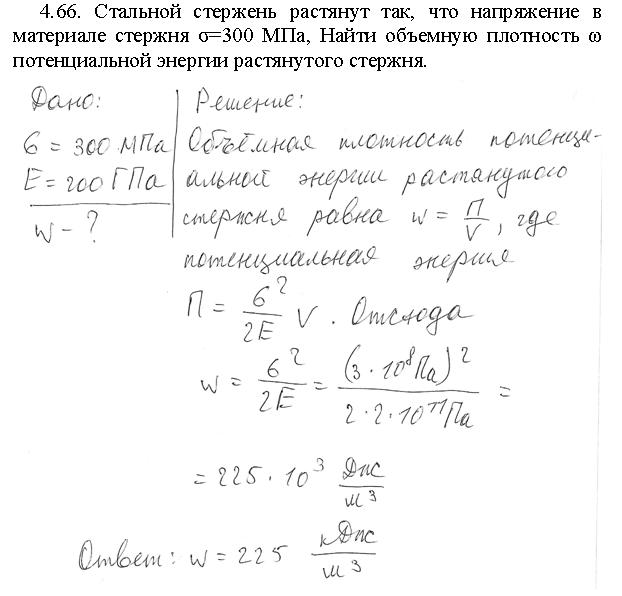 4.66. Стальной стержень растянут так, что напряжение в
материале стержня σ=300 МПа, Найти объемную плотность ω
потенциальной энергии растянутого стержня.
Дано:
σ = 300 МПа
E = 200 ГПа
w - ?
Решение:
Объёмная плотность потенци-
альной энергии растянутого
стержня равна w = П/V, где
потенциальная энергия
П = σ²/2E V. Отсюда
w = σ²/2E = (3·10⁸Па)²/2·2·10¹¹Па =
= 225·10³ Дж/м³
Ответ: w = 225 кДж/м³